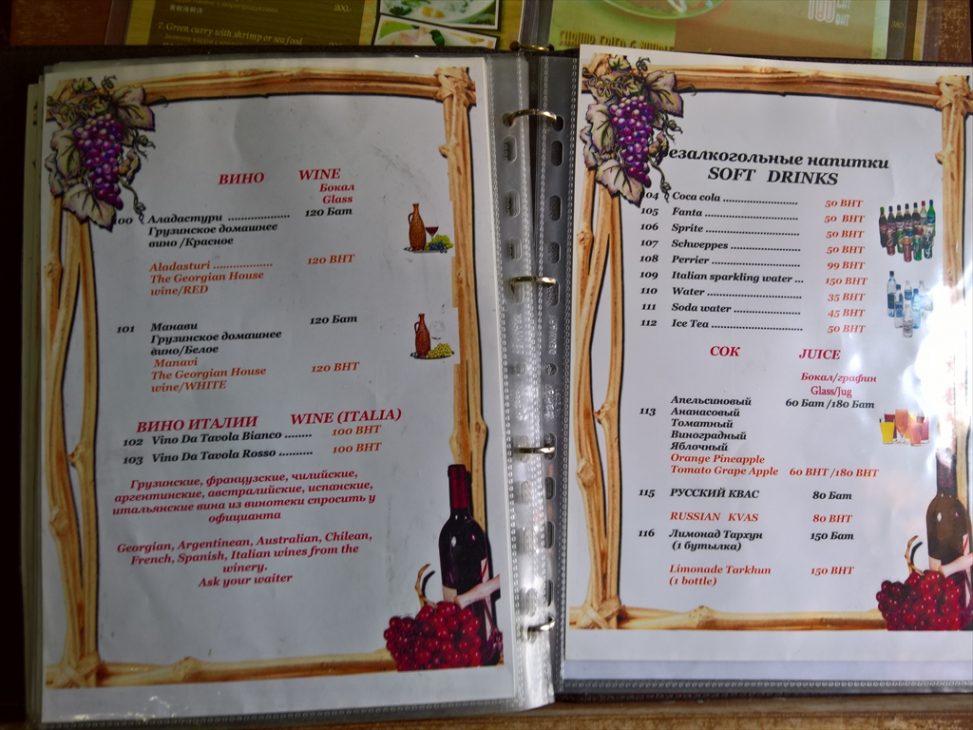 7. Green curry with shrimp or sea food
200.-
100
BHT
ВИНО WINE
Бокал
Glass
100 Аладастури .................. 120 Бат
Грузинское домашнее
вино /Красное
Aladasturi .................. 120 BHT
The Georgian House
wine/RED
101 Манави 120 Бат
Грузинское домашнее
вино/Белое
Manavi
The Georgian House 120 BHT
wine/WHITE
ВИНО ИТАЛИИ WINE (ITALIA)
102 Vino Da Tavola Bianco ........ 100 BHT
103 Vino Da Tavola Rosso .......... 100 BHT
Грузинские, французские, чилийские,
аргентинские, австралийские, испанские,
итальянские вина из винотеки спросить у
официанта
Georgian, Argentinean, Australian, Chilean,
French, Spanish, Italian wines from the
winery.
Ask your waiter
Безалкогольные напитки
SOFT DRINKS
104 Coca cola ........................ 50 BHT
105 Fanta .............................. 50 BHT
106 Sprite .............................. 50 BHT
107 Schweppes ...................... 50 BHT
108 Perrier ............................ 99 BHT
109 Italian sparkling water ... 150 BHT
110 Water .............................. 35 BHT
111 Soda water ...................... 45 BHT
112 Ice Tea ............................ 50 BHT
СОК JUICE
Бокал/графин
Glass/Jug
Апельсиновый 60 Бат /180 Бат
113 Ананасовый
Томатный
Виноградный
Яблочный
Orange Pineapple
Tomato Grape Apple 60 BHT /180 BHT
115 РУССКИЙ КВАС 80 Бат
RUSSIAN KVAS 80 BHT
116 Лимонад Тархун 150 Бат
(1 бутылка)
Limonade Tarkhun 150 BHT
(1 bottle)